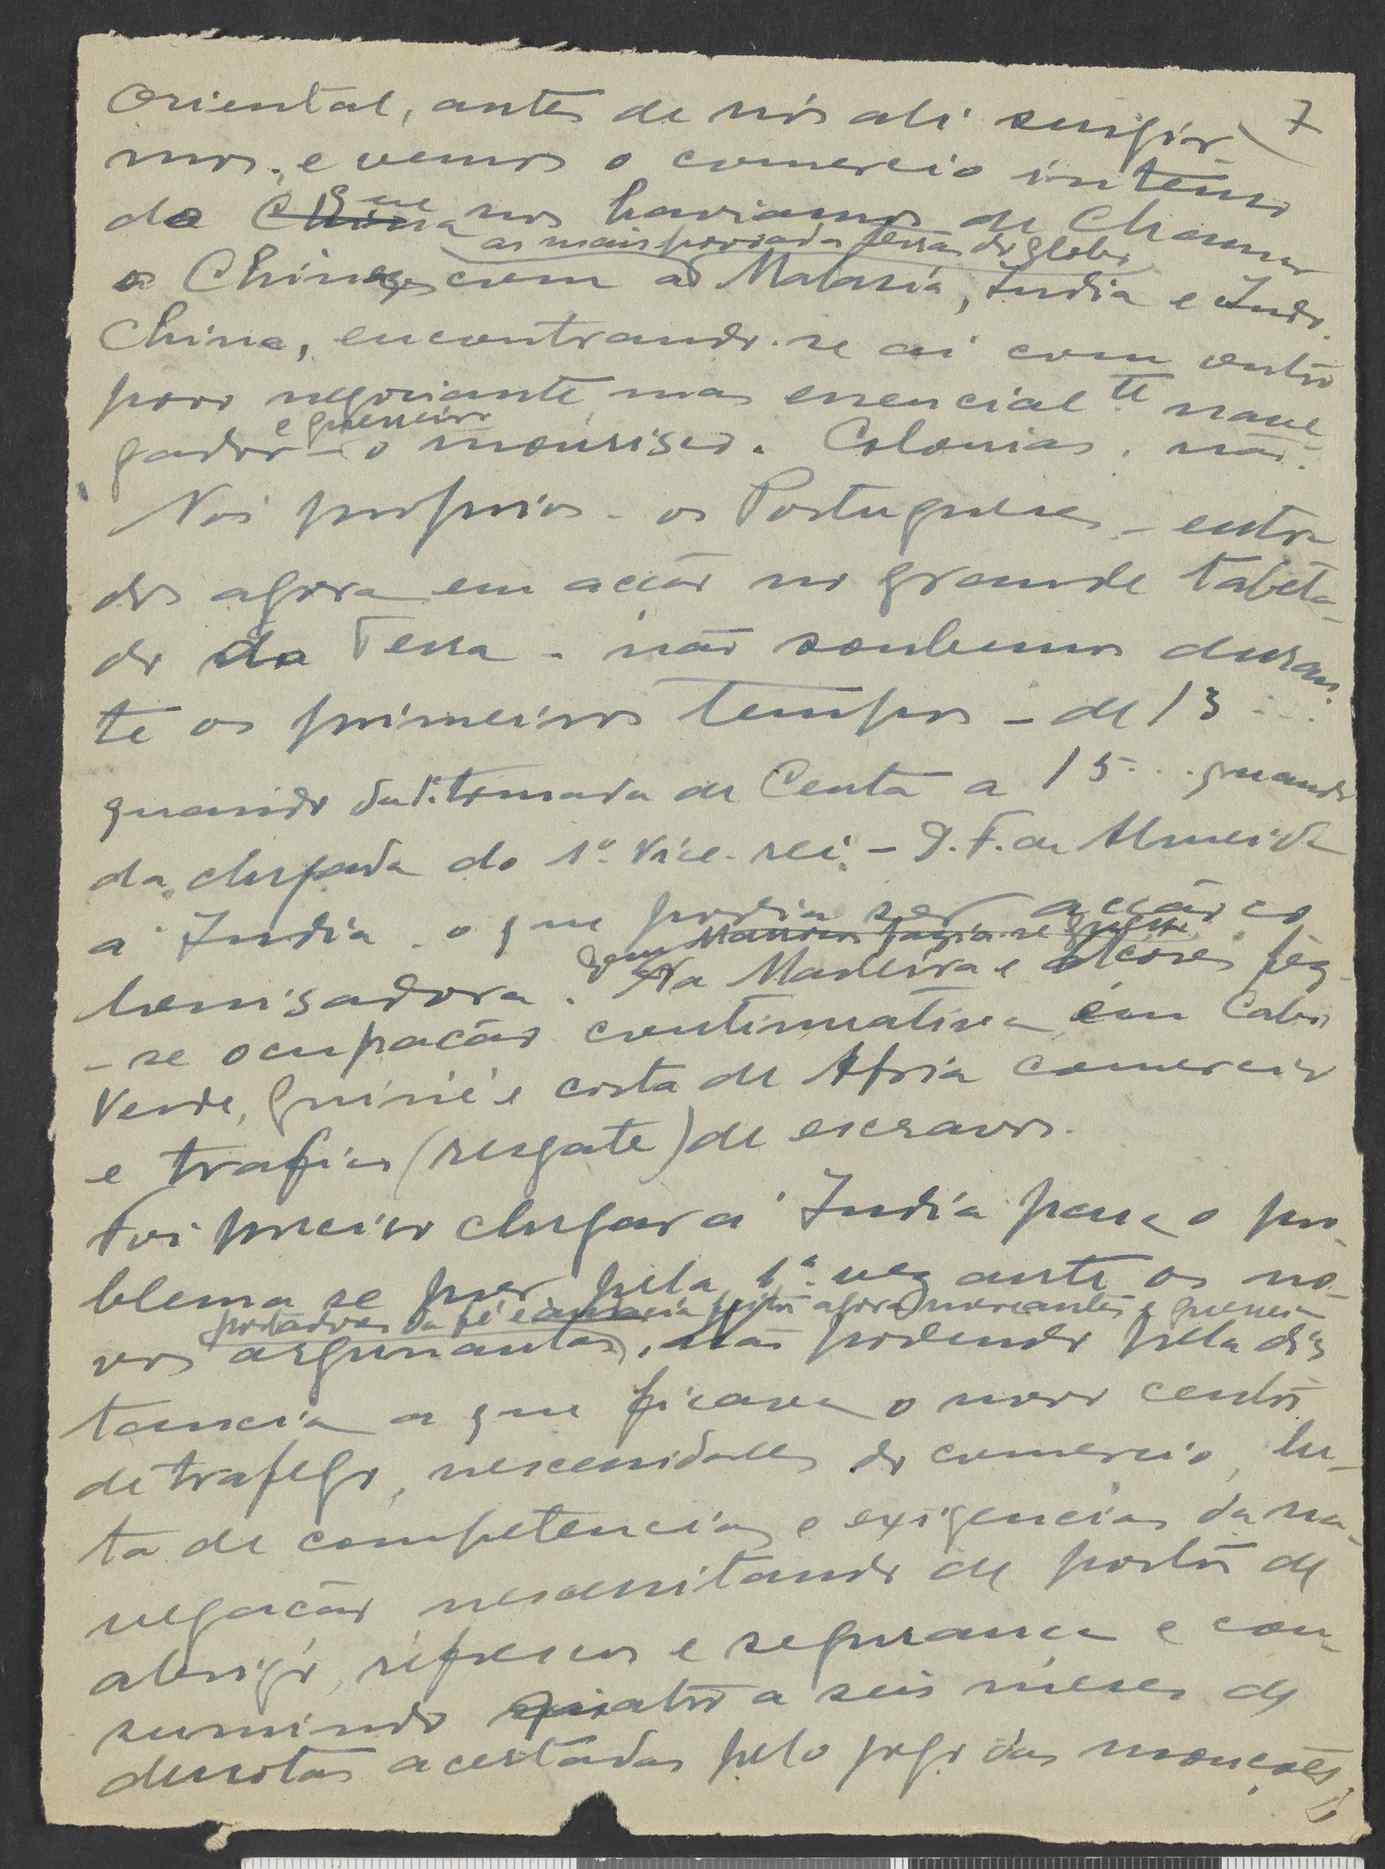 7
oriental, antes de nós ali surgir
mos, e vemos o comercio intenso
do que nos haviamos de chamar
as mais povoadas terras do globo
a China com a Malasia, India e Indo
China, encontrando-se ai com outro
povo negociante, mas essencialte nave
e guerreiro
gador - o mourisco. Colonias, não.
Nós proprios - os Portugueses - entra
dos agora em acção no grande tabola
do da Terra - não soubemos duran
te os primeiros tempos - de 13 ...
quando da tomada de Ceuta a 15 ... quando
da chegada do 1º Vice-rei - D. F. de Almeida
á India - o que podia ser acção co
lonisadora. Na Madeira e Açores fez
-se ocupação continuativa, em Cabo
Verde, Guiné e costa de Africa comercio
e trafico (resgate) de escravos.
Foi preciso chegar á India para o pro
blema se pôr pela 1ª vez ante os no
portadores da fé agora mercantes e guerrei
vos argonautas, não podendo pela dis
tancia a que ficava o novo centro
de trafego, necessidades do comercio, lu
ta de competencias e exigencias da na
vegação necessitando de portos de
abrigo, refresco e segurança e con
sumindo quatro a seis meses de
derrotas acertadas pelo jogo das monções,